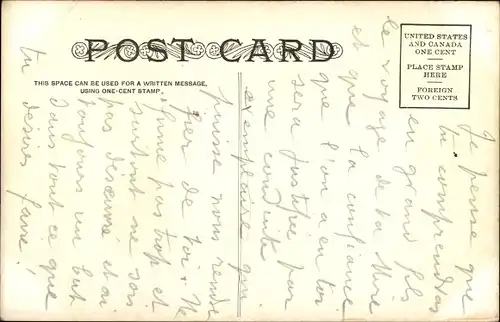 POST CARD
THIS SPACE CAN BE USED FOR A WRITTEN MESSAGE,
USING ONE-CENT STAMP.
UNITED STATES
AND CANADA
ONE CENT
PLACE STAMP
HERE
FOREIGN
TWO CENTS
Je pense que
tu comprendras
en grand fils
le voyage de ta Mère
et que la confiance
que l'on a en toi
sera justifié par
une conduite
exemplaire qui
puisse nous rendre
fier de toi. Ne
flâne pas trop et
surtout ne sois
pas désœuvré et ai
toujours un but
dans tout ce que
tu désires faire!